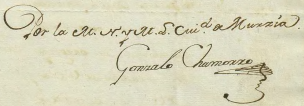 Por la M. N. y M. L. Ciud. d Murzia.
Gonzalo Chamorro